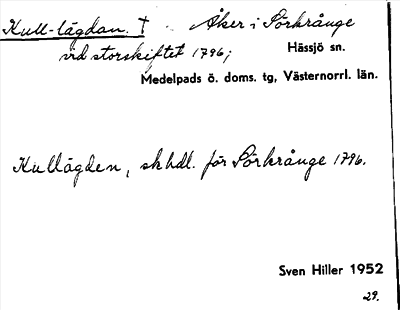 Kull-lägdan. † Åker i Sörkrånge
vid storskiftet 1796; Hässjö sn.
Medelpads ö. doms. tg, Västernorrl. län.
Kullägden, skhdl. för Sörkrånge 1796.
Sven Hiller 1952
29.